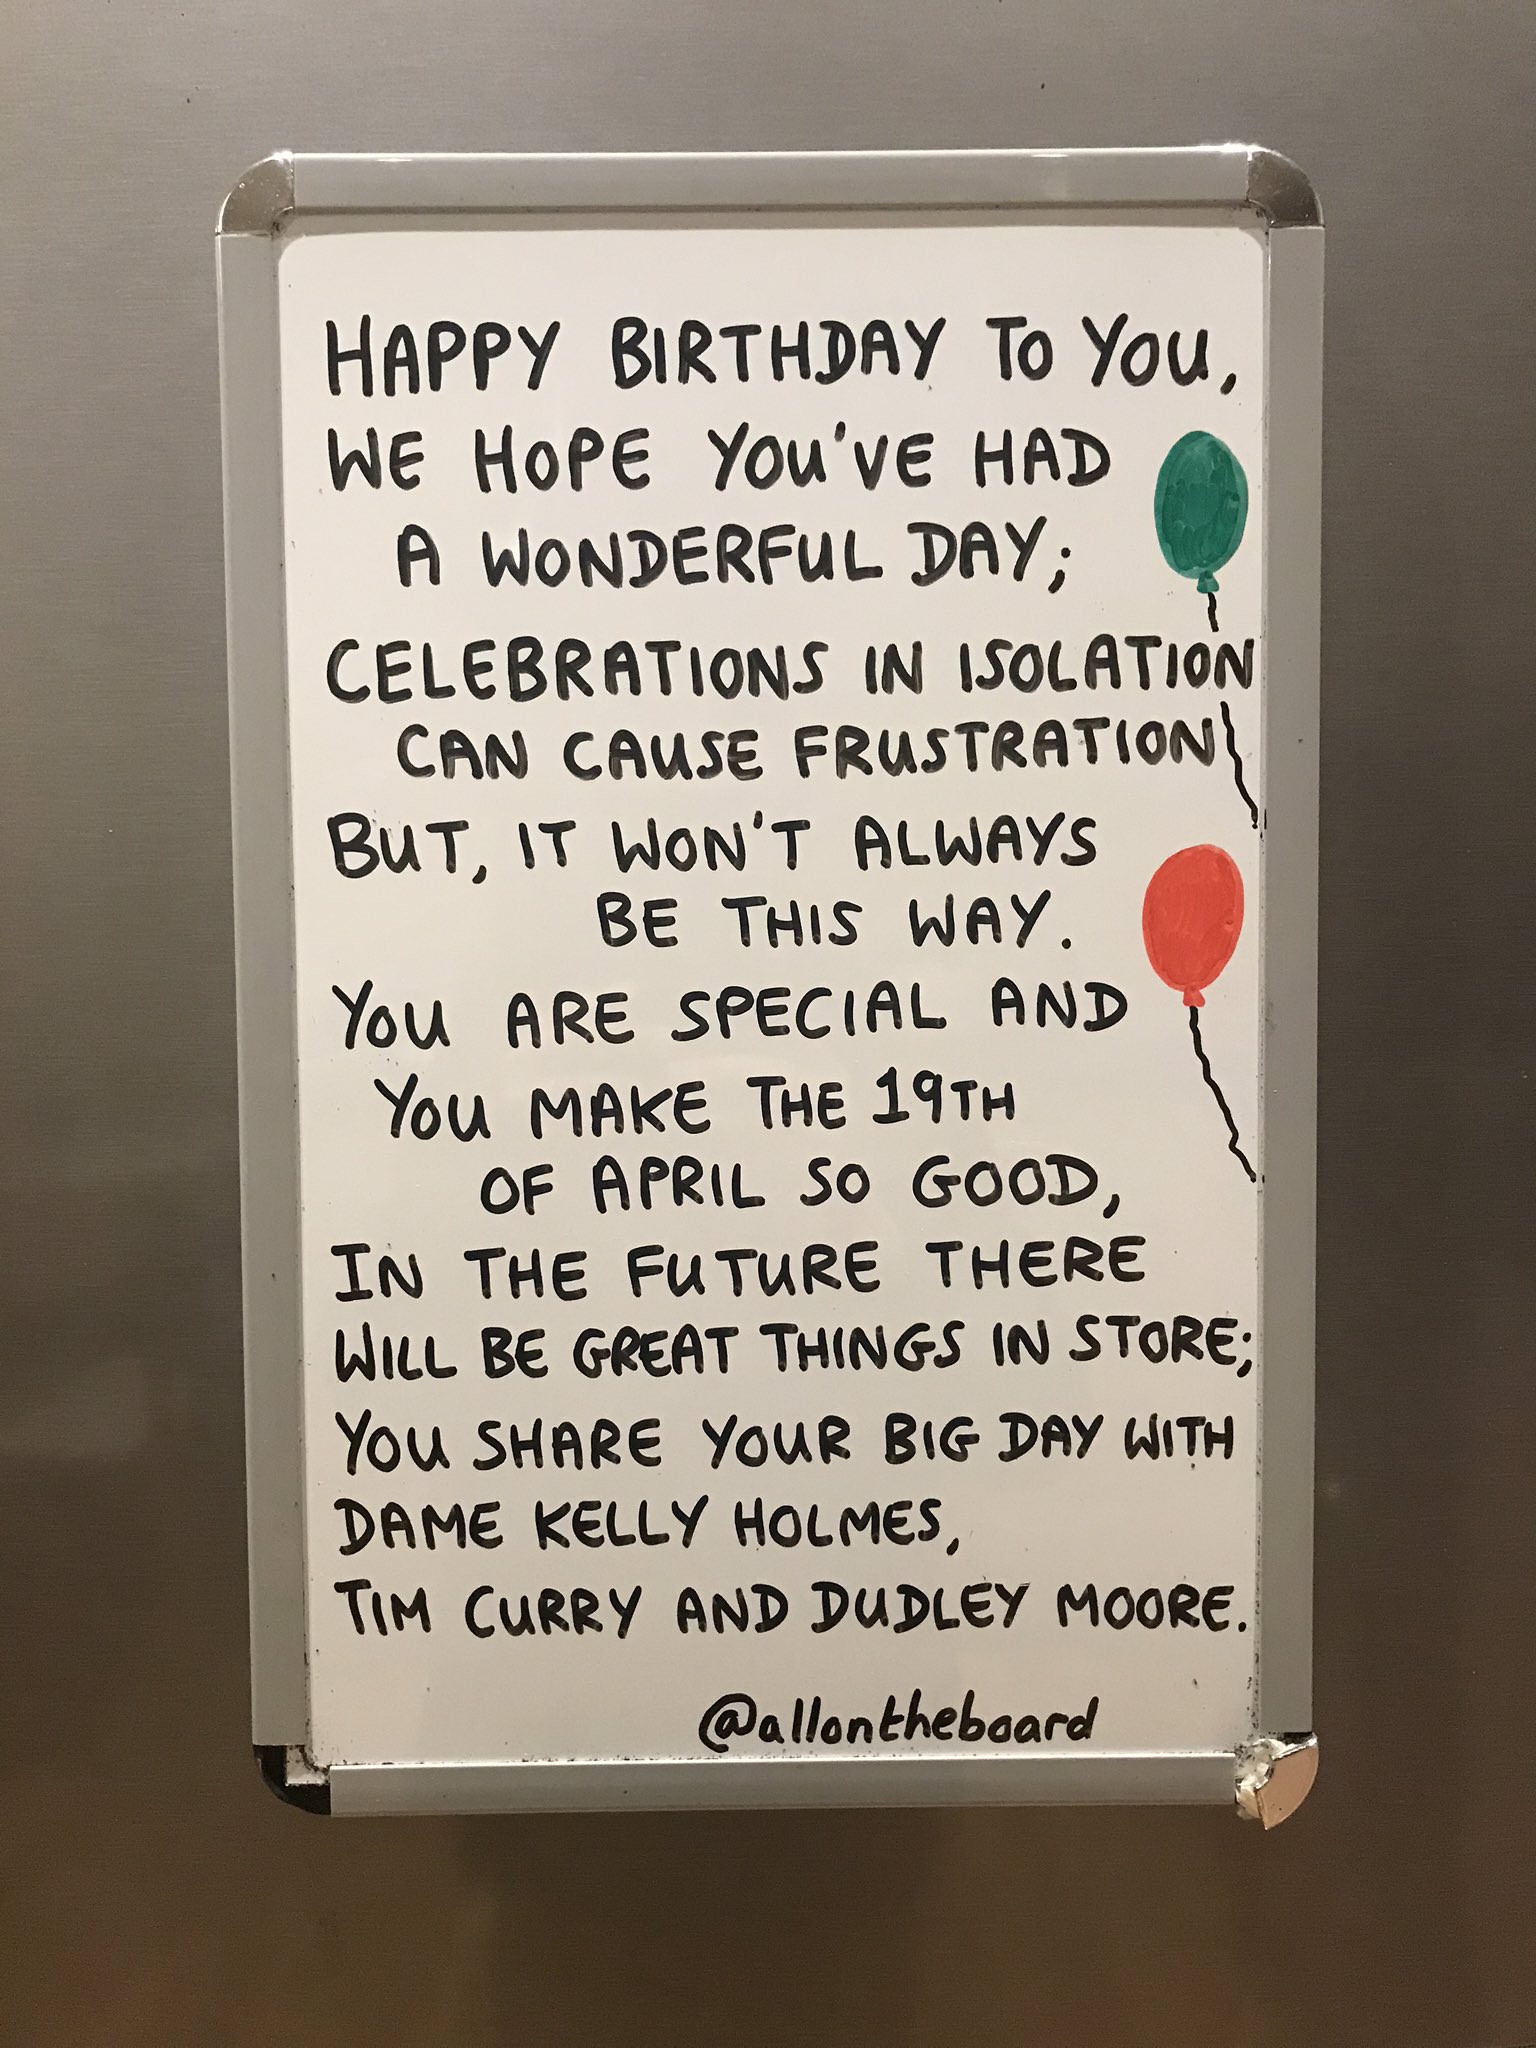 HAPPY BIRTHDAY TO YOU,
WE HOPE YOU'VE HAD
A WONDERFUL DAY;
CELEBRATIONS IN ISOLATION
CAN CAUSE FRUSTRATION
BUT, IT WON'T ALWAYS
BE THIS WAY.
YOU ARE SPECIAL AND
YOU MAKE THE 19TH
OF APRIL SO GOOD,
IN THE FUTURE THERE
WILL BE GREAT THINGS IN STORE;
YOU SHARE YOUR BIG DAY WITH
DAME KELLY HOLMES,
TIM CURRY AND DUDLEY MOORE.
@allontheboard